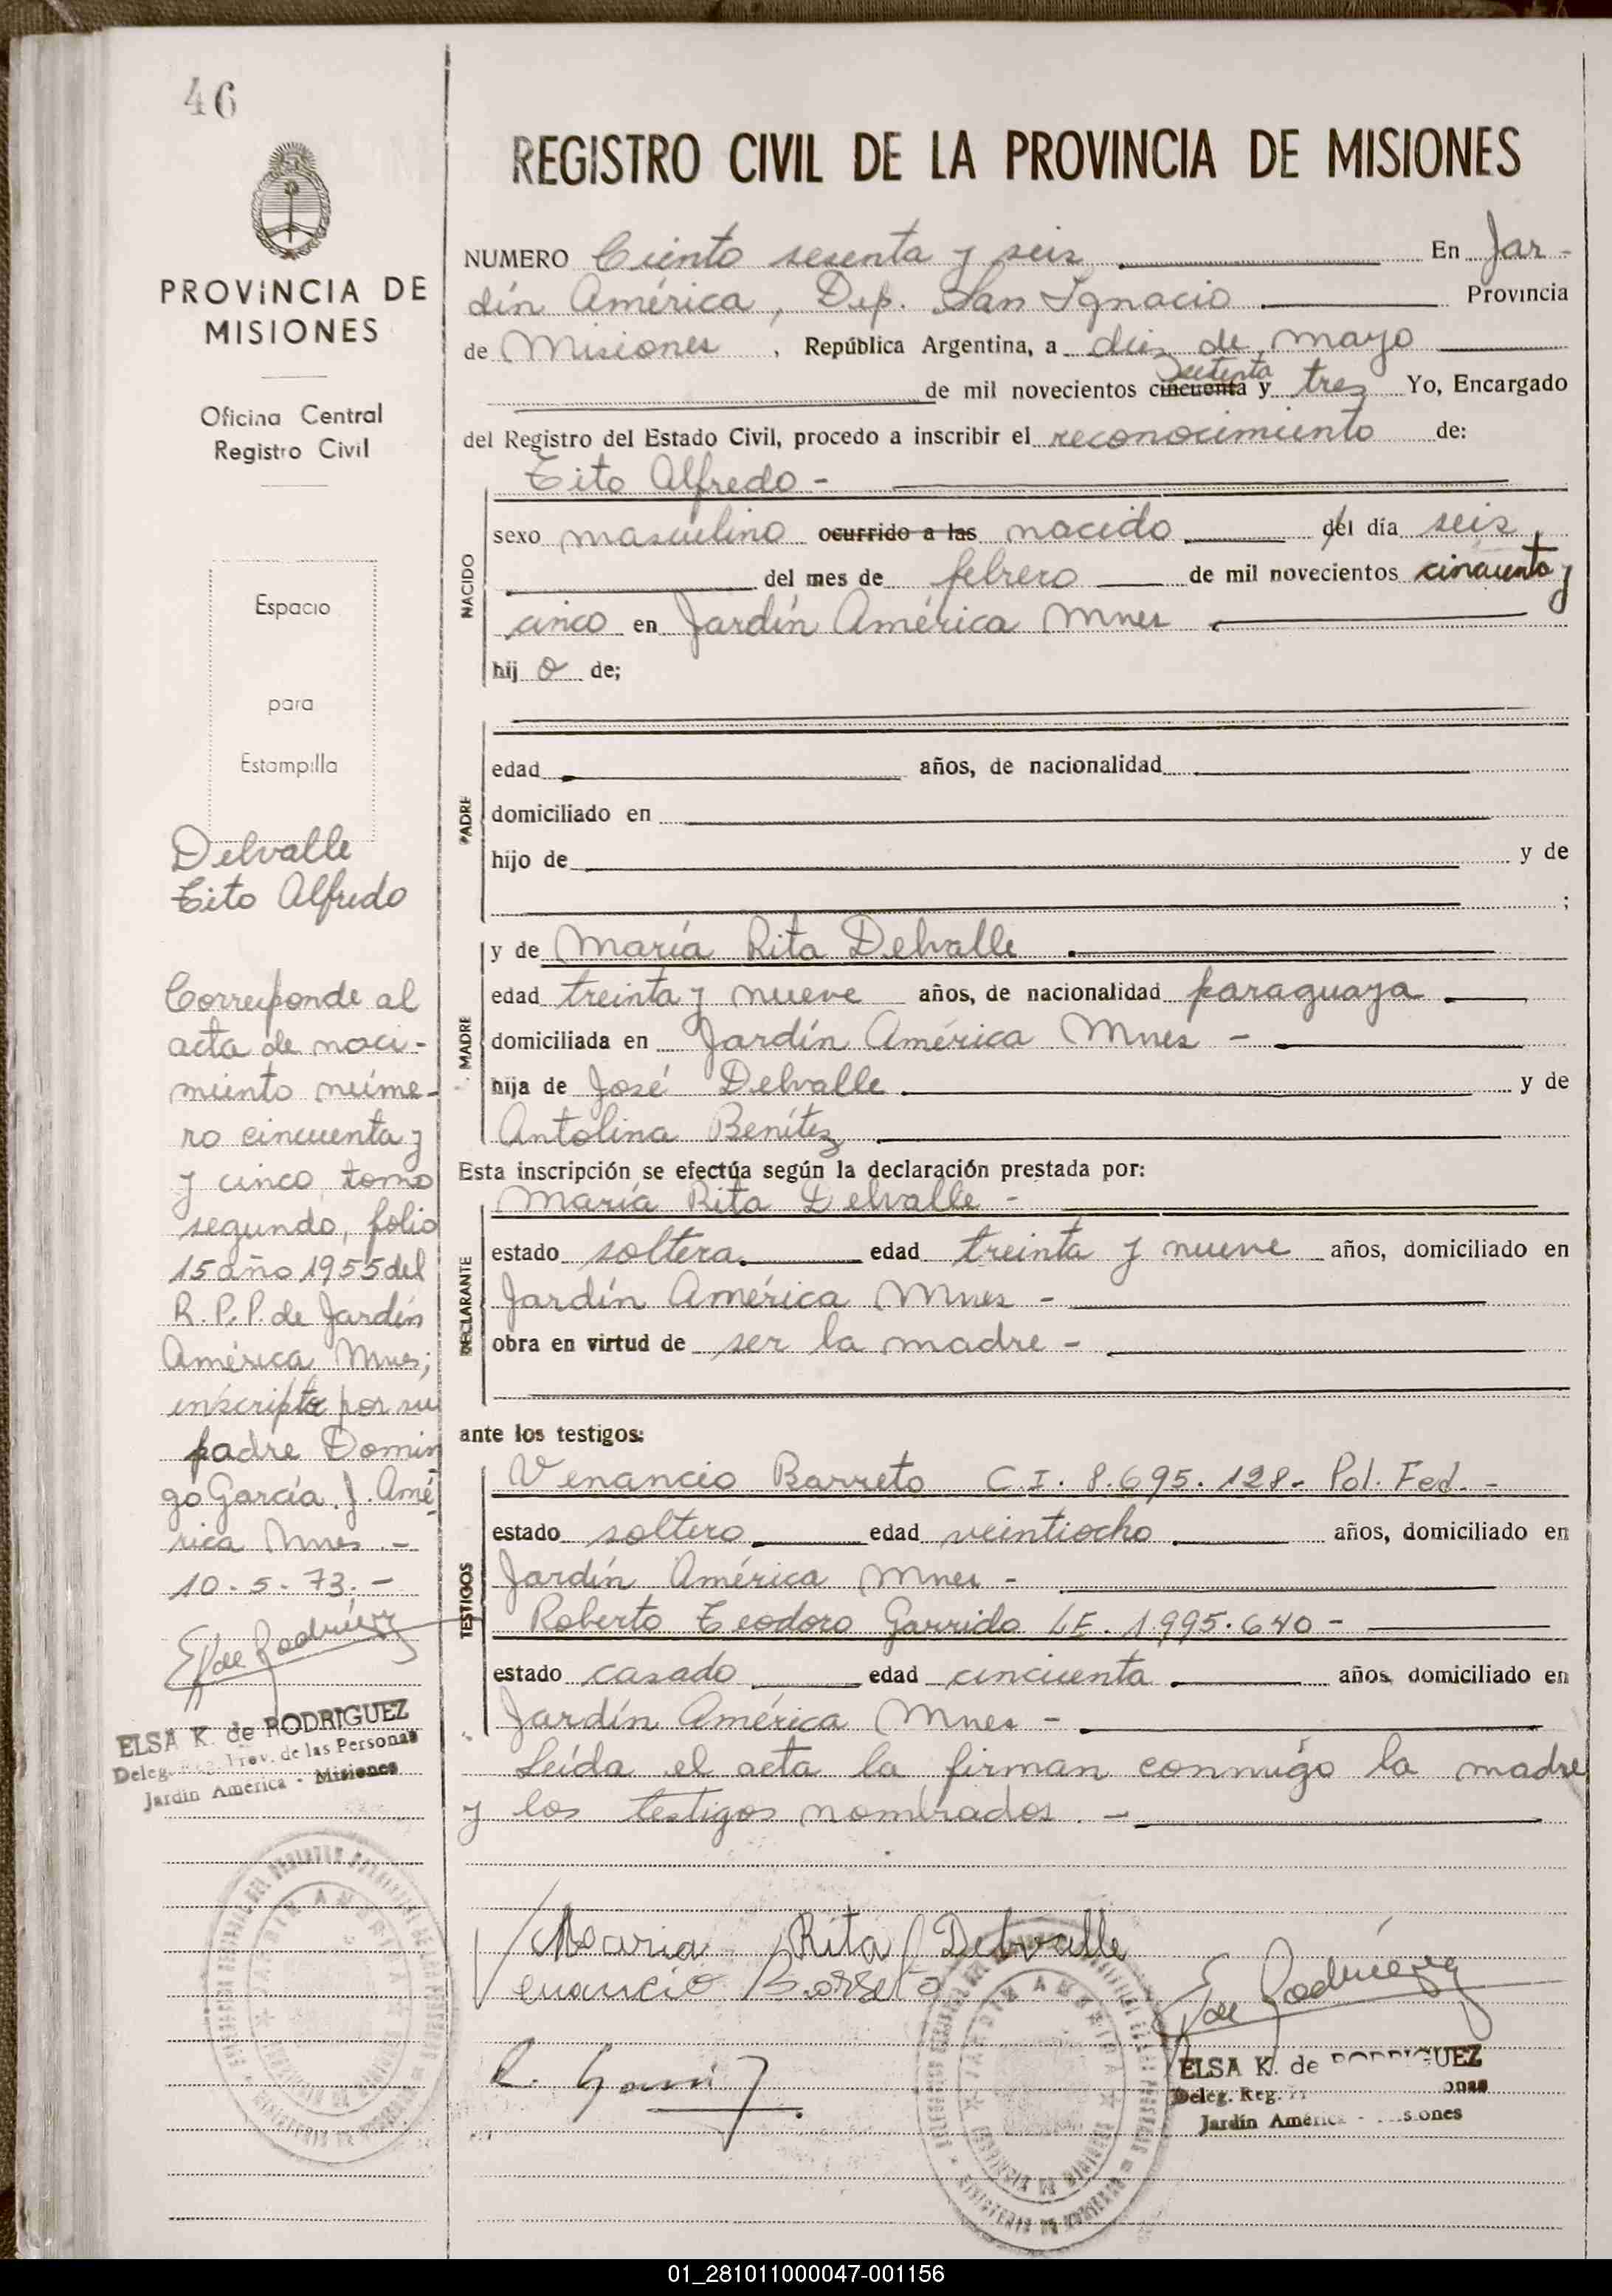 46
PROVINCIA DE
MISIONES
Oficina Central
Registro Civil
Espacio
para
Estampilla
Delvalle
Tito Alfredo
Corresponde al
acta de naci-
miento núme-
ro cincuenta y
y cinco, tomo
segundo, folio
15 año 1955 del
R. P. P. de Jardín
América Mnes;
inscripto por su
padre Domin
go García. J. Amé
rica Mnes.-
10-5-73.-
E K de Rodríguez
ELSA K. de RODRIGUEZ
Deleg. Reg. Prov. de las Personas
Jardín América - Misiones
REGISTRO CIVIL DE LA PROVINCIA DE MISIONES
NUMERO Ciento sesenta y seis En Jar-
dín América, Dep. San Ignacio Provincia
de Misiones, República Argentina, a diez de mayo
setenta
de mil novecientos cincuenta y tres Yo, Encargado
del Registro del Estado Civil, procedo a inscribir el reconocimiento de:
Tito Alfredo -
NACIDO
sexo masculino ocurrido a las nacido del día seis
del mes de febrero de mil novecientos cincuenta y
cinco en Jardín América Mnes
hij o de;
PADRE
edad años, de nacionalidad
domiciliado en
hijo de y de
;
MADRE
y de María Rita Delvalle
edad treinta y nueve años, de nacionalidad paraguaya
domiciliada en Jardín América Mnes -
hija de José Delvalle y de
Antolina Benítez
Esta inscripción se efectúa según la declaración prestada por:
DECLARANTE
María Rita Delvalle -
estado soltera edad treinta y nueve años, domiciliado en
Jardín América Mnes -
obra en virtud de ser la madre -
ante los testigos:
TESTIGOS
Venancio Barreto C.I. 8.695.128- Pol. Fed. -
estado soltero edad veintiocho años, domiciliado en
Jardín América Mnes -
Roberto Teodoro Garrido LE. 1.995.640 -
estado casado edad cincuenta años, domiciliado en
Jardín América Mnes -
Leída el acta la firman conmigo la madre
y los testigos nombrados. -
María Rita Delvalle
Venancio Barreto
R. Garri
E K de Rodríguez
ELSA K. de RODRIGUEZ
Deleg. Reg. onas
Jardín América - siones
JARDIN AMERICA
01_281011000047-001156